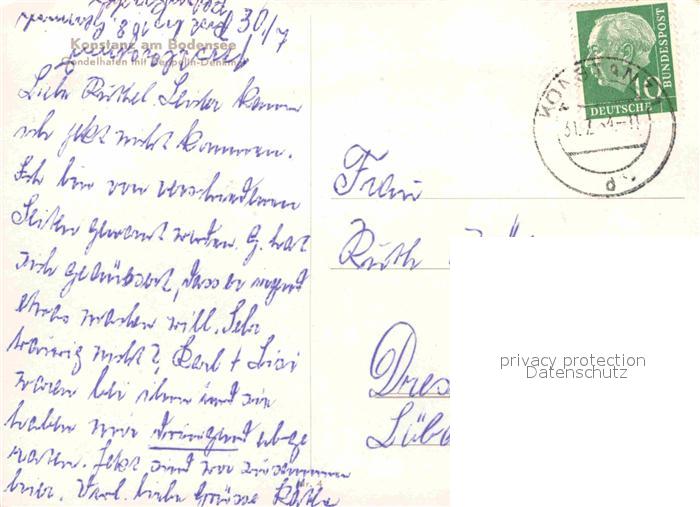 30/7
Konstanz am Bodensee
Gondelhafen mit Zeppelin-Denkmal
Liebe Ruthel. Leider kann
ich jetzt nicht kommen.
Ich bin von verschiedenen
Seiten gewarnt worden. G. hat
sich geäussert, dass er irgend
etwas machen will. Sehr
traurig nicht?, Karl + Lisi
waren bei ihm und sie
haben mir dringend abge
raten. Jetzt sind wir zusammen
hier. Viel. liebe Grüsse Käthe
Frau
Ruth
Dres
Lüb
KONSTANZ
DEUTSCHE
BUNDESPOST
10
privacy protection
Datenschutz